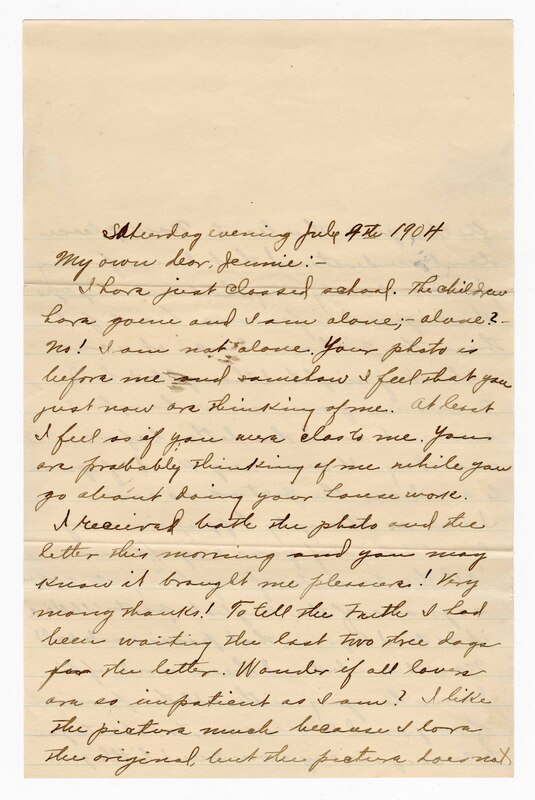 Saturday evening July 9th 1904
My own dear Jennie:-
I have just closed school. The children
have gone and I am alone;- alone?-
No! I am not alone. Your photo is
before me and somehow I feel that you
just now are thinking of me. At least
I feel as if you were close to me. You
are probably thinking of me while you
go about doing your housework.
I received both the photo and the
letter this morning and you may
know it brought me pleasure! Very
many thanks! To tell the truth I had
been waiting the last two three days
for the letter. Wonder if all lovers
are so impatient as I am? I like
the picture much because I love
the original, but the picture does not